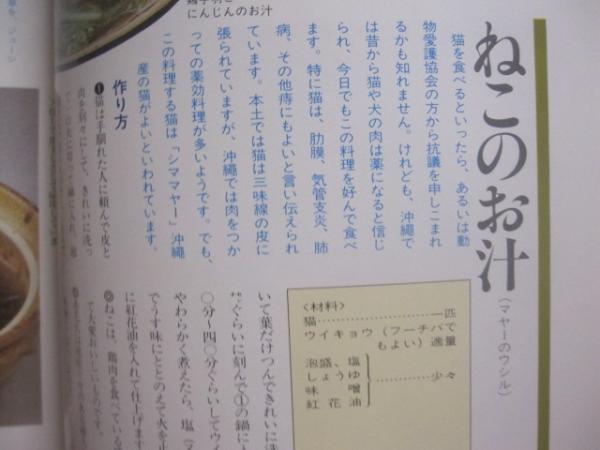 鶏手羽と
にんじんのお汁
ねこのお汁
(マヤーのウシル)
猫を食べるといったら、あるいは動
物愛護協会の方から抗議を申しこまれ
るかも知れません。けれども、沖縄で
は昔から猫や犬の肉は薬になると信じ
られ、今日でもこの料理を好んで食べ
ます。特に猫は、肋膜、気管支炎、肺
病、その他痔にもよいと言い伝えられ
ています。本土では猫は三味線の皮に
張られていますが、沖縄では肉をつか
っての薬効料理が多いようです。でも、
この料理する猫は「シママヤー」沖縄
産の猫がよいといわれています。
作り方
❶猫は手馴れた人に頼んで皮と
肉を別々にして、きれいに洗っ
〈材料〉
猫……………………一匹
ウイキョウ（フーチバで
もよい）適量
泡盛、塩
しょうゆ
味噌
紅花油
…………少々
いて葉だけつんできれいに洗
ぐらいに刻んで①の鍋に
〇分～四〇分ぐらいしてウイ
やわらかく煮えたら、塩
でうす味にととのえて火を止
に紅花油を入れて仕上げます
ねこは、鶏肉を食べている
て大変おいしいものです。